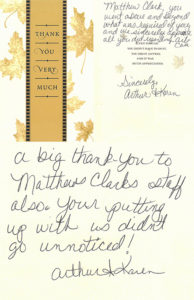 THANK
YOU
VERY
MUCH
Matthew Clark, you
went above and beyond
what was required of you
and we sincerely
all you did
Sincerely,
Arthur & Karen
a big thank you to
Matthew Clarks staff
also. Your putting
up with us didn't
go unnoticed!
Arthur & Karen